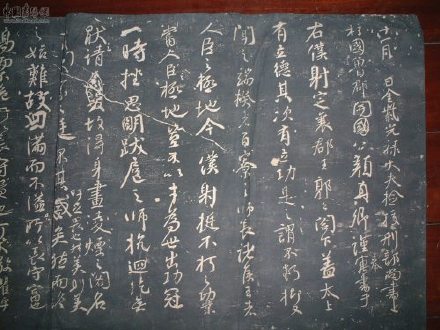 十一月 日金紫光祿大夫檢挍刑部尚書上
柱國魯郡開國公顏真卿謹奉書于
右僕射定襄郡王郭公閣下蓋太上
有立德其次有立功是之謂不朽抑又
聞之端揆者百寮之師長諸侯王者
人臣之極地今僕射挺不朽之功業
當人臣之極地豈不以才為世出功冠
一時挫思明跋扈之師抗迴紇無厭
之請故得身畫凌煙之閣名
之廷 矣然美則美矣而終
之始難故曰滿而不溢所以長守富